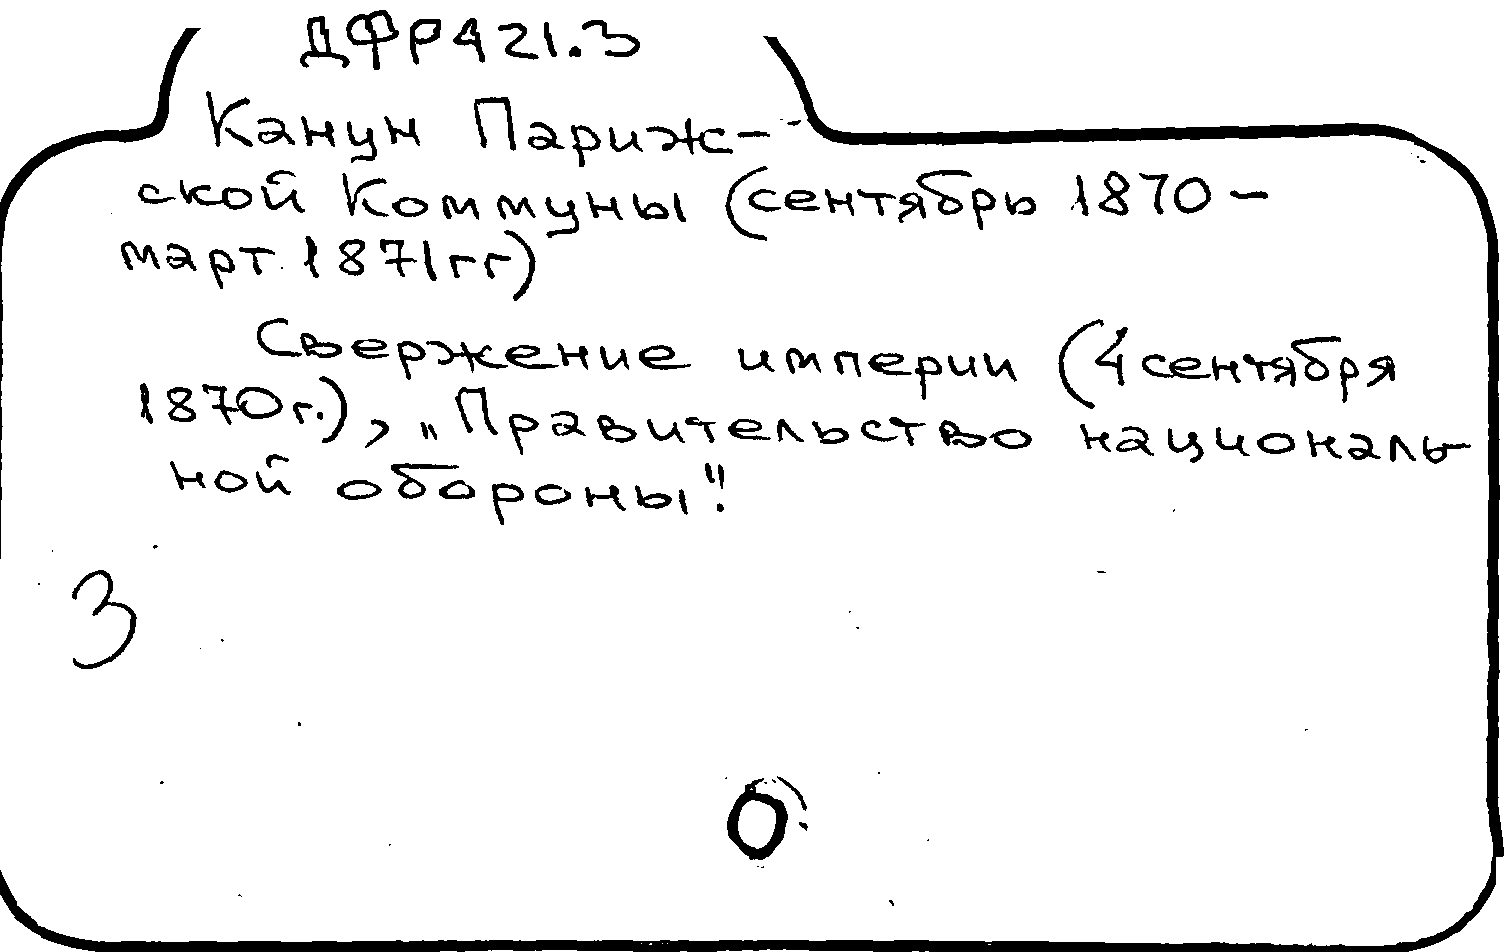 ДФР421.3
Канун Париж-
ской Коммуны (сентябрь 1870 -
март 1871гг)
Свержение империи (4 сентября
1870г.), „Правительство националь-
ной обороны".
3